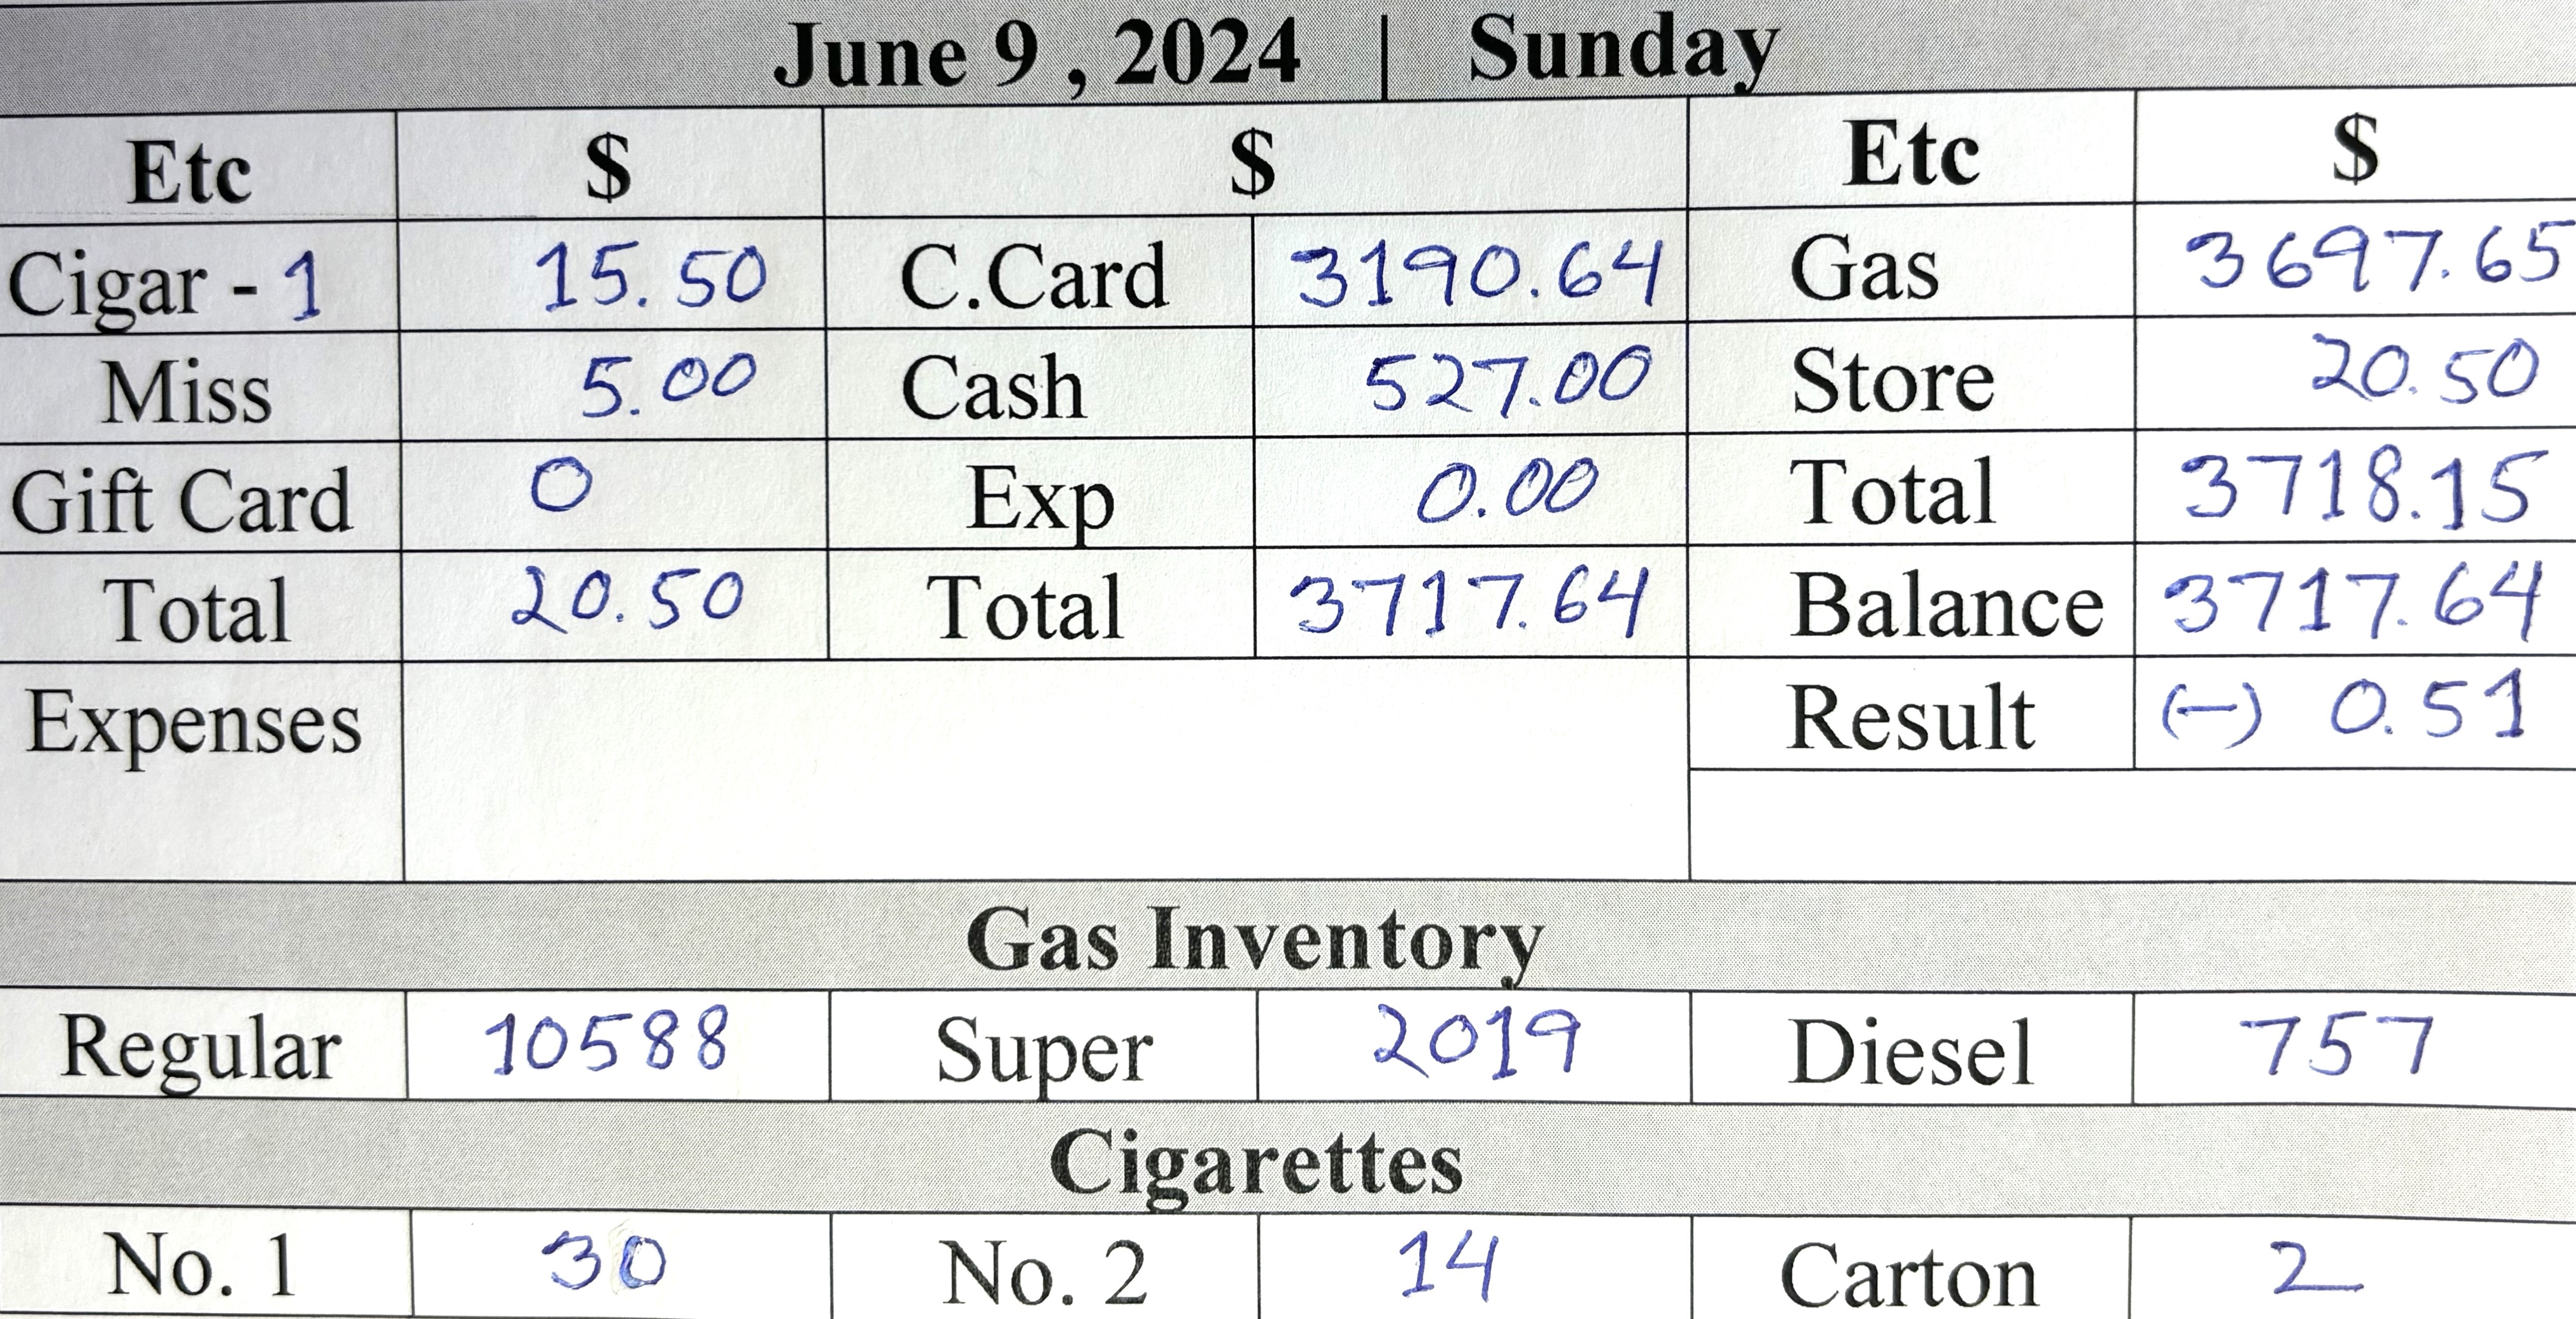 June 9 , 2024 | Sunday
Etc $ $ Etc $
Cigar - 1 15.50 C.Card 3190.64 Gas 3697.65
Miss 5.00 Cash 527.00 Store 20.50
Gift Card 0 Exp 0.00 Total 3718.15
Total 20.50 Total 3717.64 Balance 3717.64
Expenses Result (-) 0.51
Gas Inventory
Regular 10588 Super 2019 Diesel 757
Cigarettes
No. 1 30 No. 2 14 Carton 2